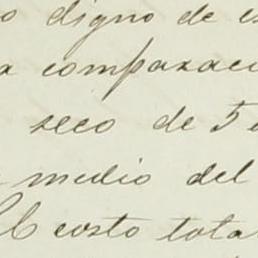 o digno de e
a comparac
seco de 5
medio del
El costo tota